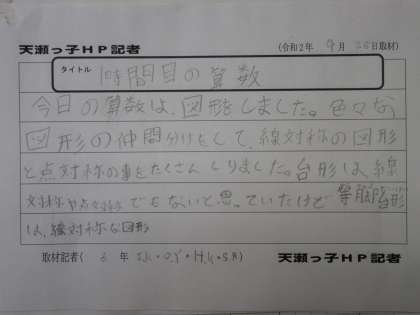 天瀬っ子HP記者
(令和2年 9月 26日取材)
タイトル 1時間目の算数
今日の算数は、図形をしました。色々な
図形の仲間分けをして、線対称の図形
と点対称の事をたくさんしりました。台形は、線
対称や点対称でもないと思っていたけど等脚台形
は、線対称な図形
取材記者( 6 年
天瀬っ子HP記者